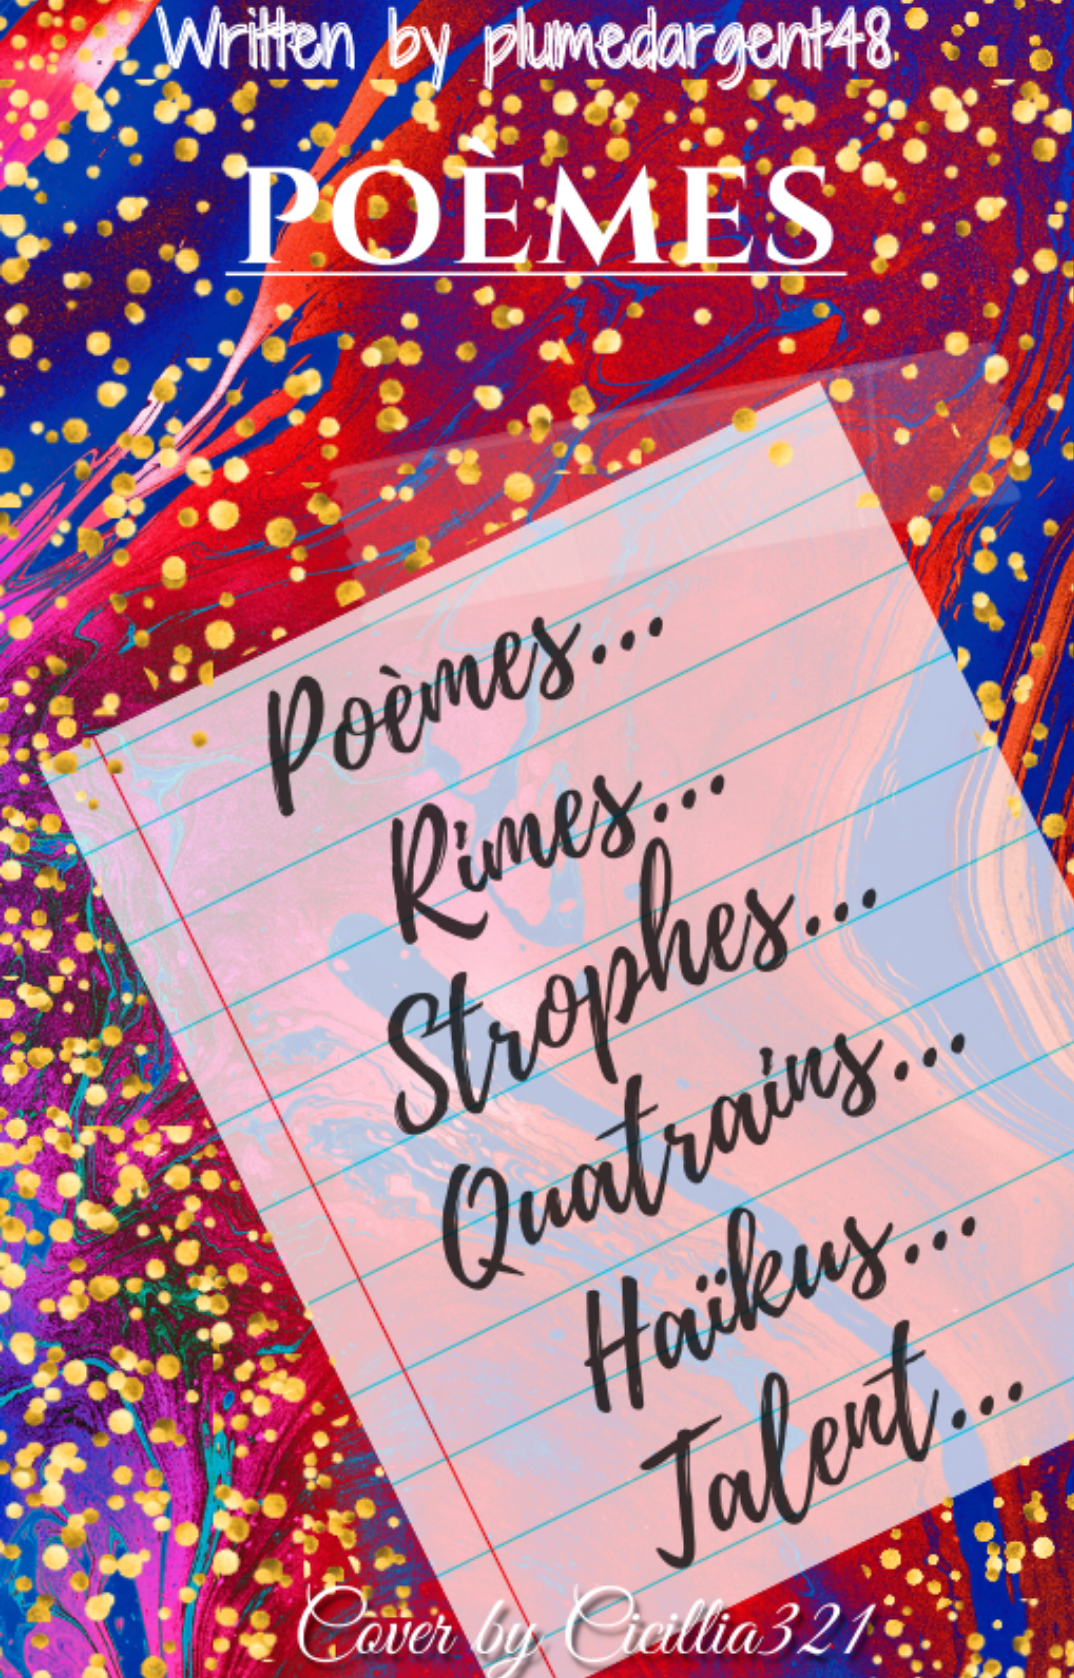 Written by plumedargent48
POÈMES
Poèmes...
Rimes...
Strophes...
Quatrains...
Haïkus...
Talent...
Cover by Cicillia321